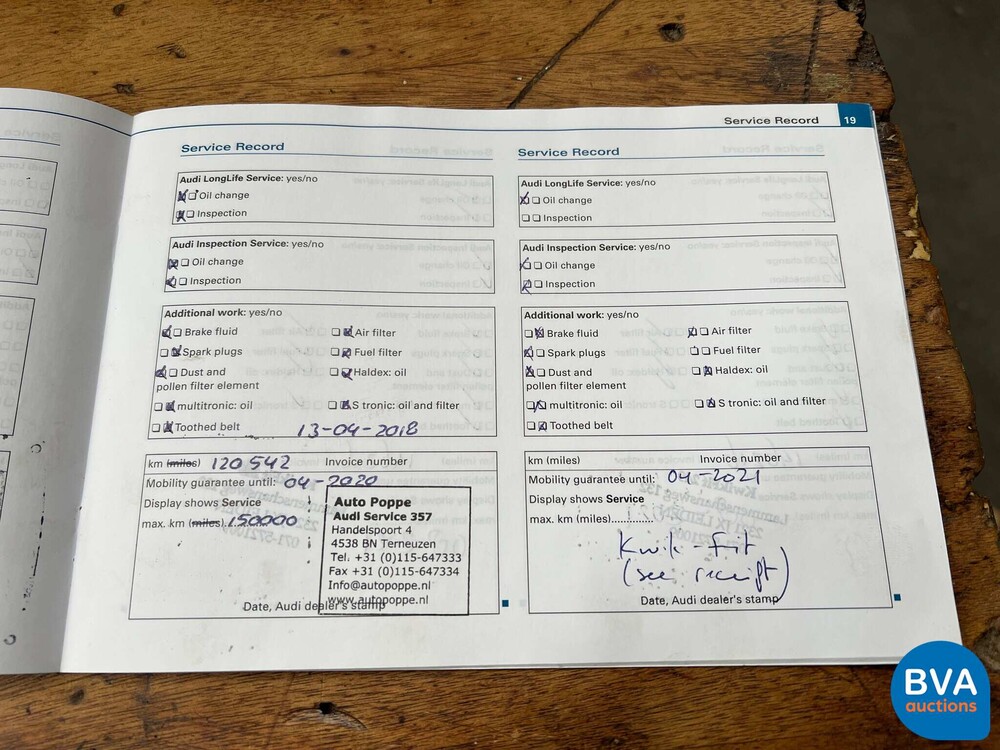 Service Record 19
Service Record
Audi LongLife Service: yes/no
Oil change
Inspection
Audi Inspection Service: yes/no
Oil change
Inspection
Additional work: yes/no
Brake fluid Air filter
Spark plugs Fuel filter
Dust and Haldex: oil
pollen filter element
multitronic: oil S tronic: oil and filter
Toothed belt 13-04-2018
km (miles) 120 542 Invoice number
Mobility guarantee until: 04-2020
Display shows Service
max. km (miles). 150000
Auto Poppe
Audi Service 357
Handelspoort 4
4538 BN Terneuzen
Tel. +31 (0)115-647333
Fax +31 (0)115-647334
Info@autopoppe.nl
www.autopoppe.nl
Date, Audi dealer's stamp
Service Record
Audi LongLife Service: yes/no
Oil change
Inspection
Audi Inspection Service: yes/no
Oil change
Inspection
Additional work: yes/no
Brake fluid Air filter
Spark plugs Fuel filter
Dust and Haldex: oil
pollen filter element
multitronic: oil S tronic: oil and filter
Toothed belt
km (miles) Invoice number
Mobility guarantee until: 04-2021
Display shows Service
max. km (miles).............
Kwik-Fit
(see receipt)
Date, Audi dealer's stamp
BVA
auctions